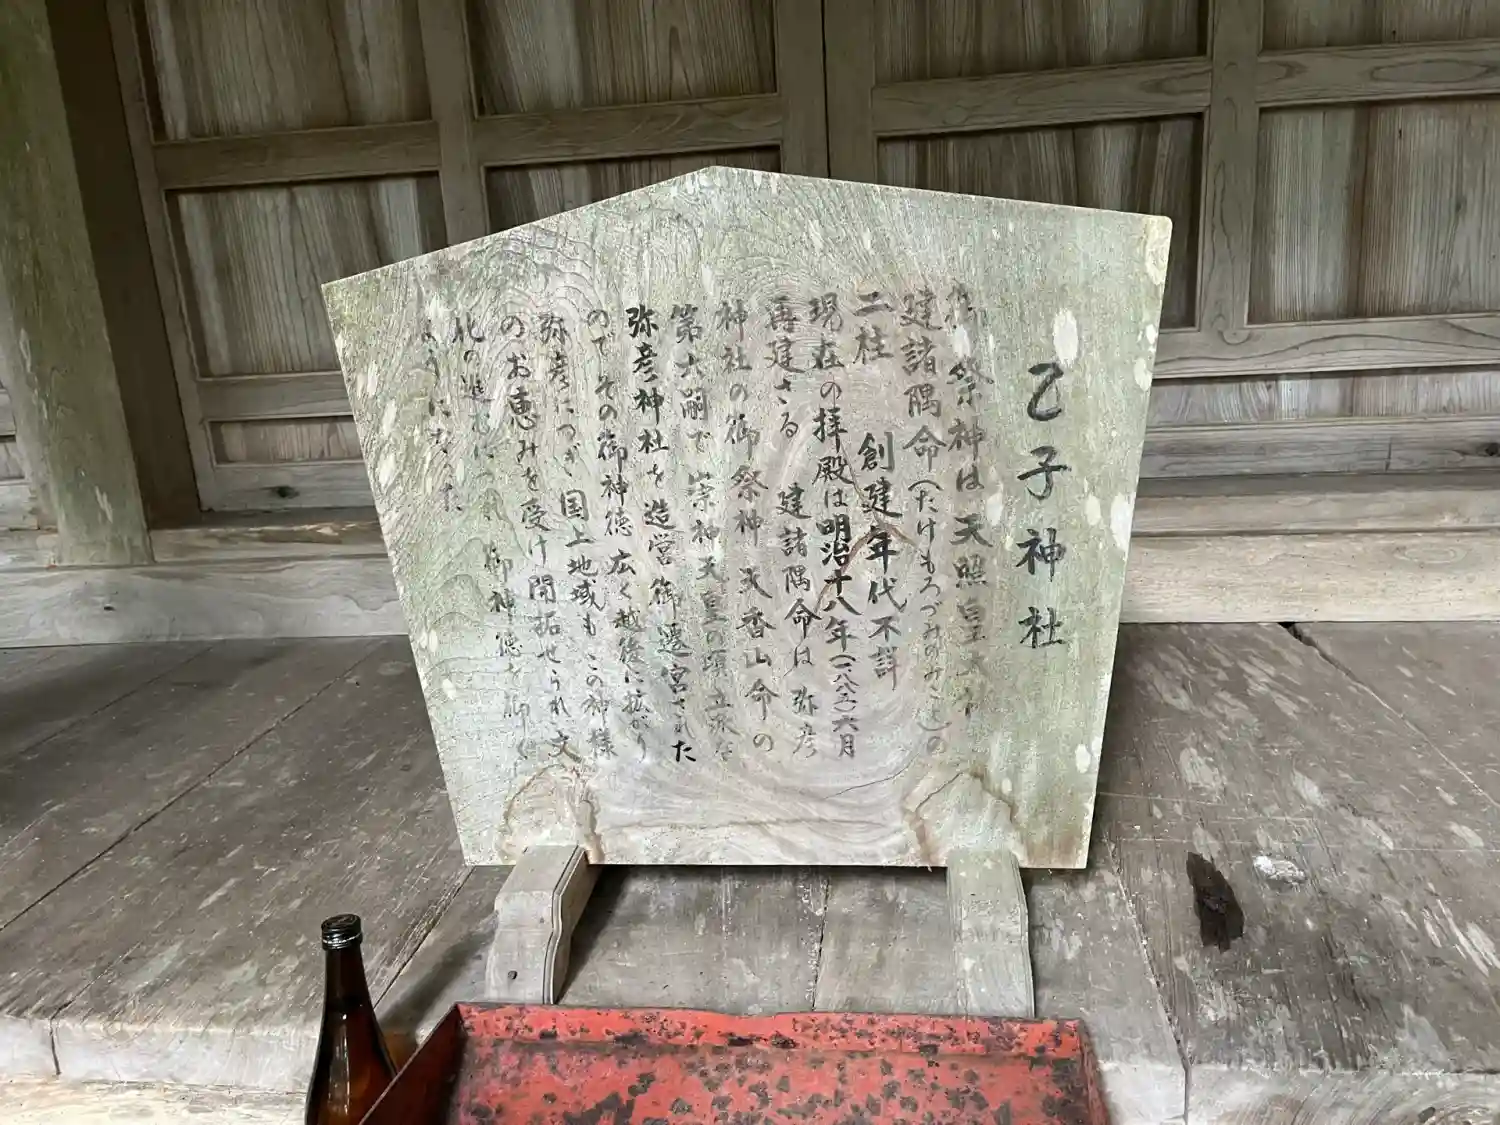 乙子神社
御祭神は天照皇大神
建諸隅命(たけもろづみのみこと)の
二柱 創建年代不詳
現在の拝殿は明治十八年(一八八五)六月
再建さる 建諸隅命は弥彦
神社の御祭神天香山命の
第六嗣で崇神天皇の頃
弥彦神社を造営御遷宮された
のでその御神徳広く越後に拡がり
弥彦につぎ国上地域もこの神様
のお恵みを受け開拓せられ文
化の進むにつれ御神徳を仰ぐ
ようになった